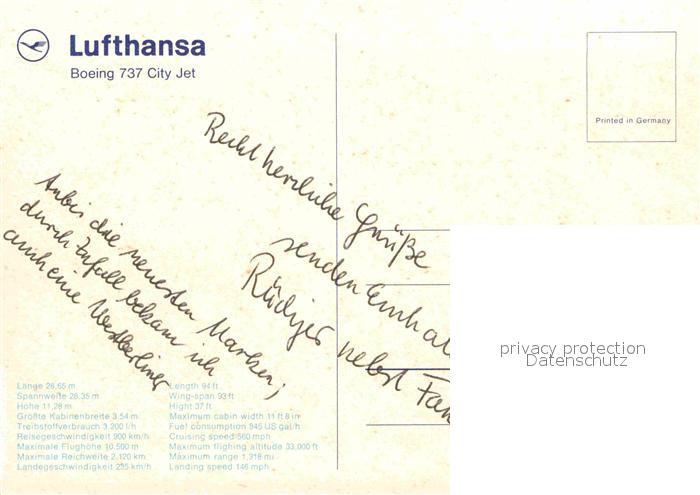 Lufthansa
Boeing 737 City Jet
Printed in Germany
Recht herzliche Grüße
senden Einhal
Rüdiger nebst Fam
Anbei die neuesten Marken;
durch Zufall bekam ich
auch eine Westberliner
Länge 28,65 m
Spannweite 28,35 m
Höhe 11,28 m
Größte Kabinenbreite 3,54 m
Treibstoffverbrauch 3.200 l/h
Reisegeschwindigkeit 900 km/h
Maximale Flughöhe 10.500 m
Maximale Reichweite 2.120 km
Landegeschwindigkeit 235 km/h
Length 94 ft
Wing-span 93 ft
Hight 37 ft
Maximum cabin width 11 ft 8 in
Fuel consumption 845 US gal/h
Cruising speed 560 mph
Maximum flighing altitude 33,000 ft
Maximum range 1,318 mi
Landing speed 146 mph
privacy protection
Datenschutz